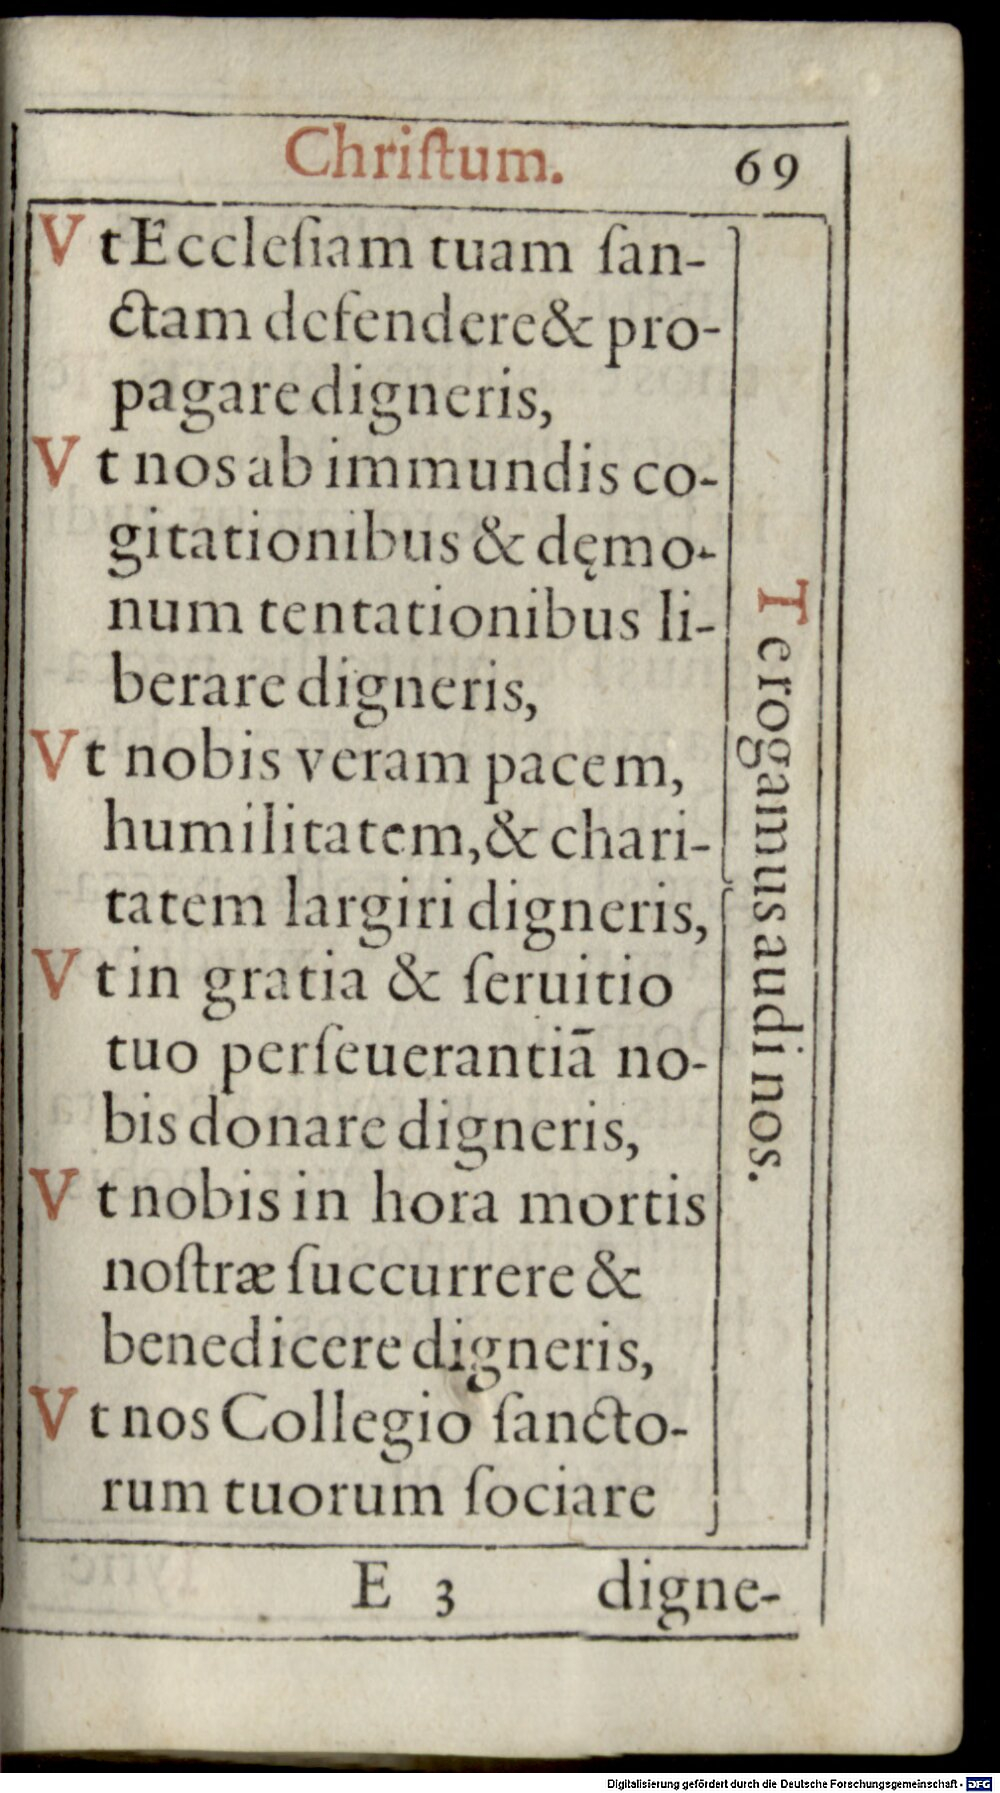 Chriſtum. 69
Vt Eccleſiam tuam ſan-
ctam defendere & pro-
pagare digneris,
Vt nos ab immundis co-
gitationibus & dęmo-
num tentationibus li-
berare digneris,
Vt nobis veram pacem,
humilitatem, & chari-
tatem largiri digneris,
Vt in gratia & ſeruitio
tuo perſeuerantiā no-
bis donare digneris,
Vt nobis in hora mortis
noſtræ ſuccurrere &
benedicere digneris,
Vt nos Collegio ſancto-
rum tuorum ſociare
Te rogamus audi nos.
E 3 digne-
Digitalisierung gefördert durch die Deutsche Forschungsgemeinschaft - DFG